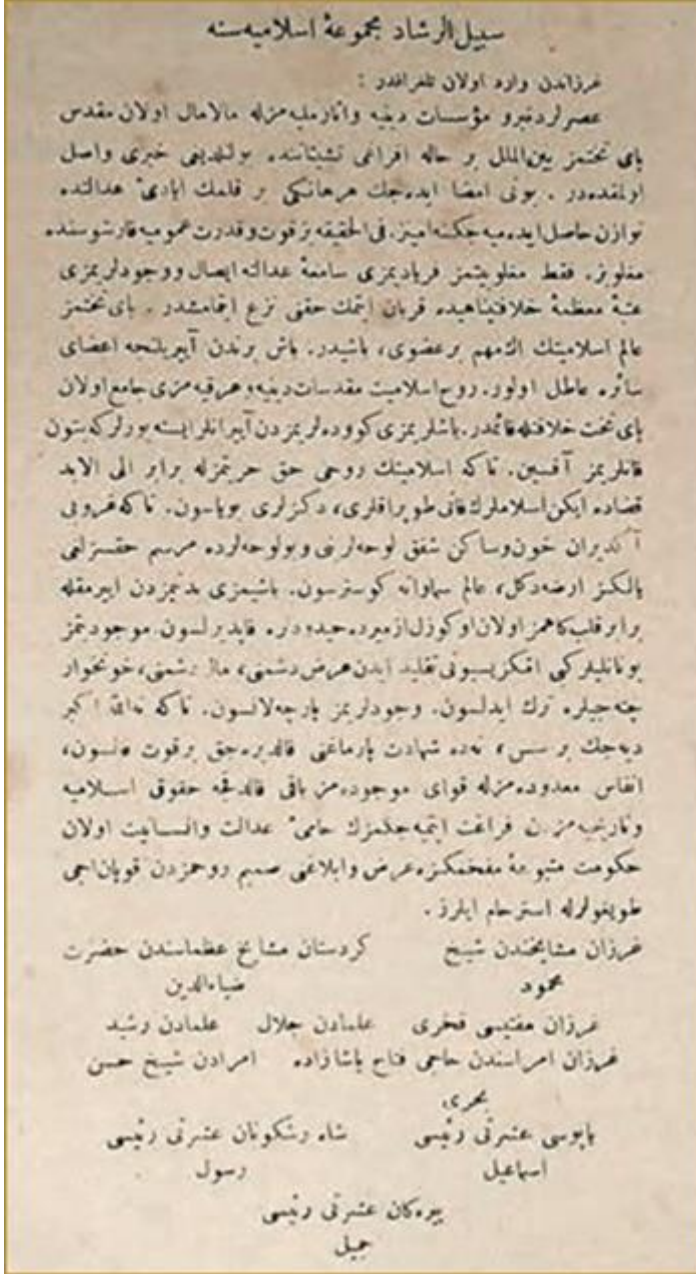 سبيل الرشاد مجموعهٔ اسلاميه سنه
غرزاندن وارد اولان تلغرافدر :
عصرلردنبرو مؤسسات دينيه وآثار مليه مزله مالامال اولان مقدس
پای تختمز بين الملل بر حاله افراغی تشبثاتنده بولنديغی خبری واصل
اولمقده در . بونی امضا ايده جك هرهانكی بر قلمك ايادیٔ عدالتده
توازن حاصل ايده ميه جكنه امينز. فی الحقيقه بز قوت وقدرت عموميه قارشوسنده
مغلوبز. فقط مغلوبيتمز فريادمزی سامعهٔ عدالته ايصال ووجودلريمزی
عتبهٔ معظمهٔ خلافتپناهيده قربان ايتمك حقنی نزع ايتمامشدر . پای تختمز
عالم اسلاميتك اك مهم برعضوی، باشيدر. باش بردن آيريلنجه اعضای
سائره عاطل اولور. روح اسلاميت مقدسات دينيه وعرقيه مزی جامع اولان
پای تخت خلافتله قائمدر. باشلريمزی كووده لريمزدن آييرانلر ايسته يورلركه ستون
قانلريمز آقسين. تاكه اسلاميتك روحی حق حريتمزله برابر الی الابد
قضاده ايكن اسلاملرك قانی طوپراقلری، دكزلری بوياسون. تاكه غروبی
آكديران خون وساكن شفق لوحه لرينی وبولوحه لرده مرسم حقسزلغی
يالكز ارضه دكل، عالم سماواته كوسترسون. باشيمزی بدنمزدن آييرمقله
برابر قلبكاهمز اولان او كوزل ازميرده حيدودلره قاپديرلسون. موجوديتمز
يونانليلر كبی انكزيسيونی تقليد ايدن عرض دشمنی، مال دشمنی، خونخوار
چته جيلره ترك ايدلسون. وجودلريمز پارچه لانسون. تاكه نه الله اكبر
ديه جك بر سس، نه ده شهادت پارماغنی قالديره جق بر قوت قالسون،
انفاس معدوده مزله قوای موجوده مز باقی قالدقجه حقوق اسلاميه
وتاريخيه مزدن فراغت ايتميه جكمزك حامیٔ عدالت وانسانيت اولان
حكومت متبوعهٔ مفخمكزه عرض وابلاغنی صميم روحمزدن قوپان اجی
طويغولرله استرحام ايلرز .
غرزان مشايخندن شيخ كردستان مشايخ عظماسندن حضرت
محمود ضياءالدين
غرزان مفتيسی فخری علمادن جلال علمادن رشيد
غرزان امراسندن حاجی فتاح پاشا زاده امرادن شيخ حسن
بحری
پاپوسی عشرتی رئيسی شاه رشكوتان عشرتی رئيسی
اسماعيل رسول
بيره كان عشرتی رئيسی
جميل